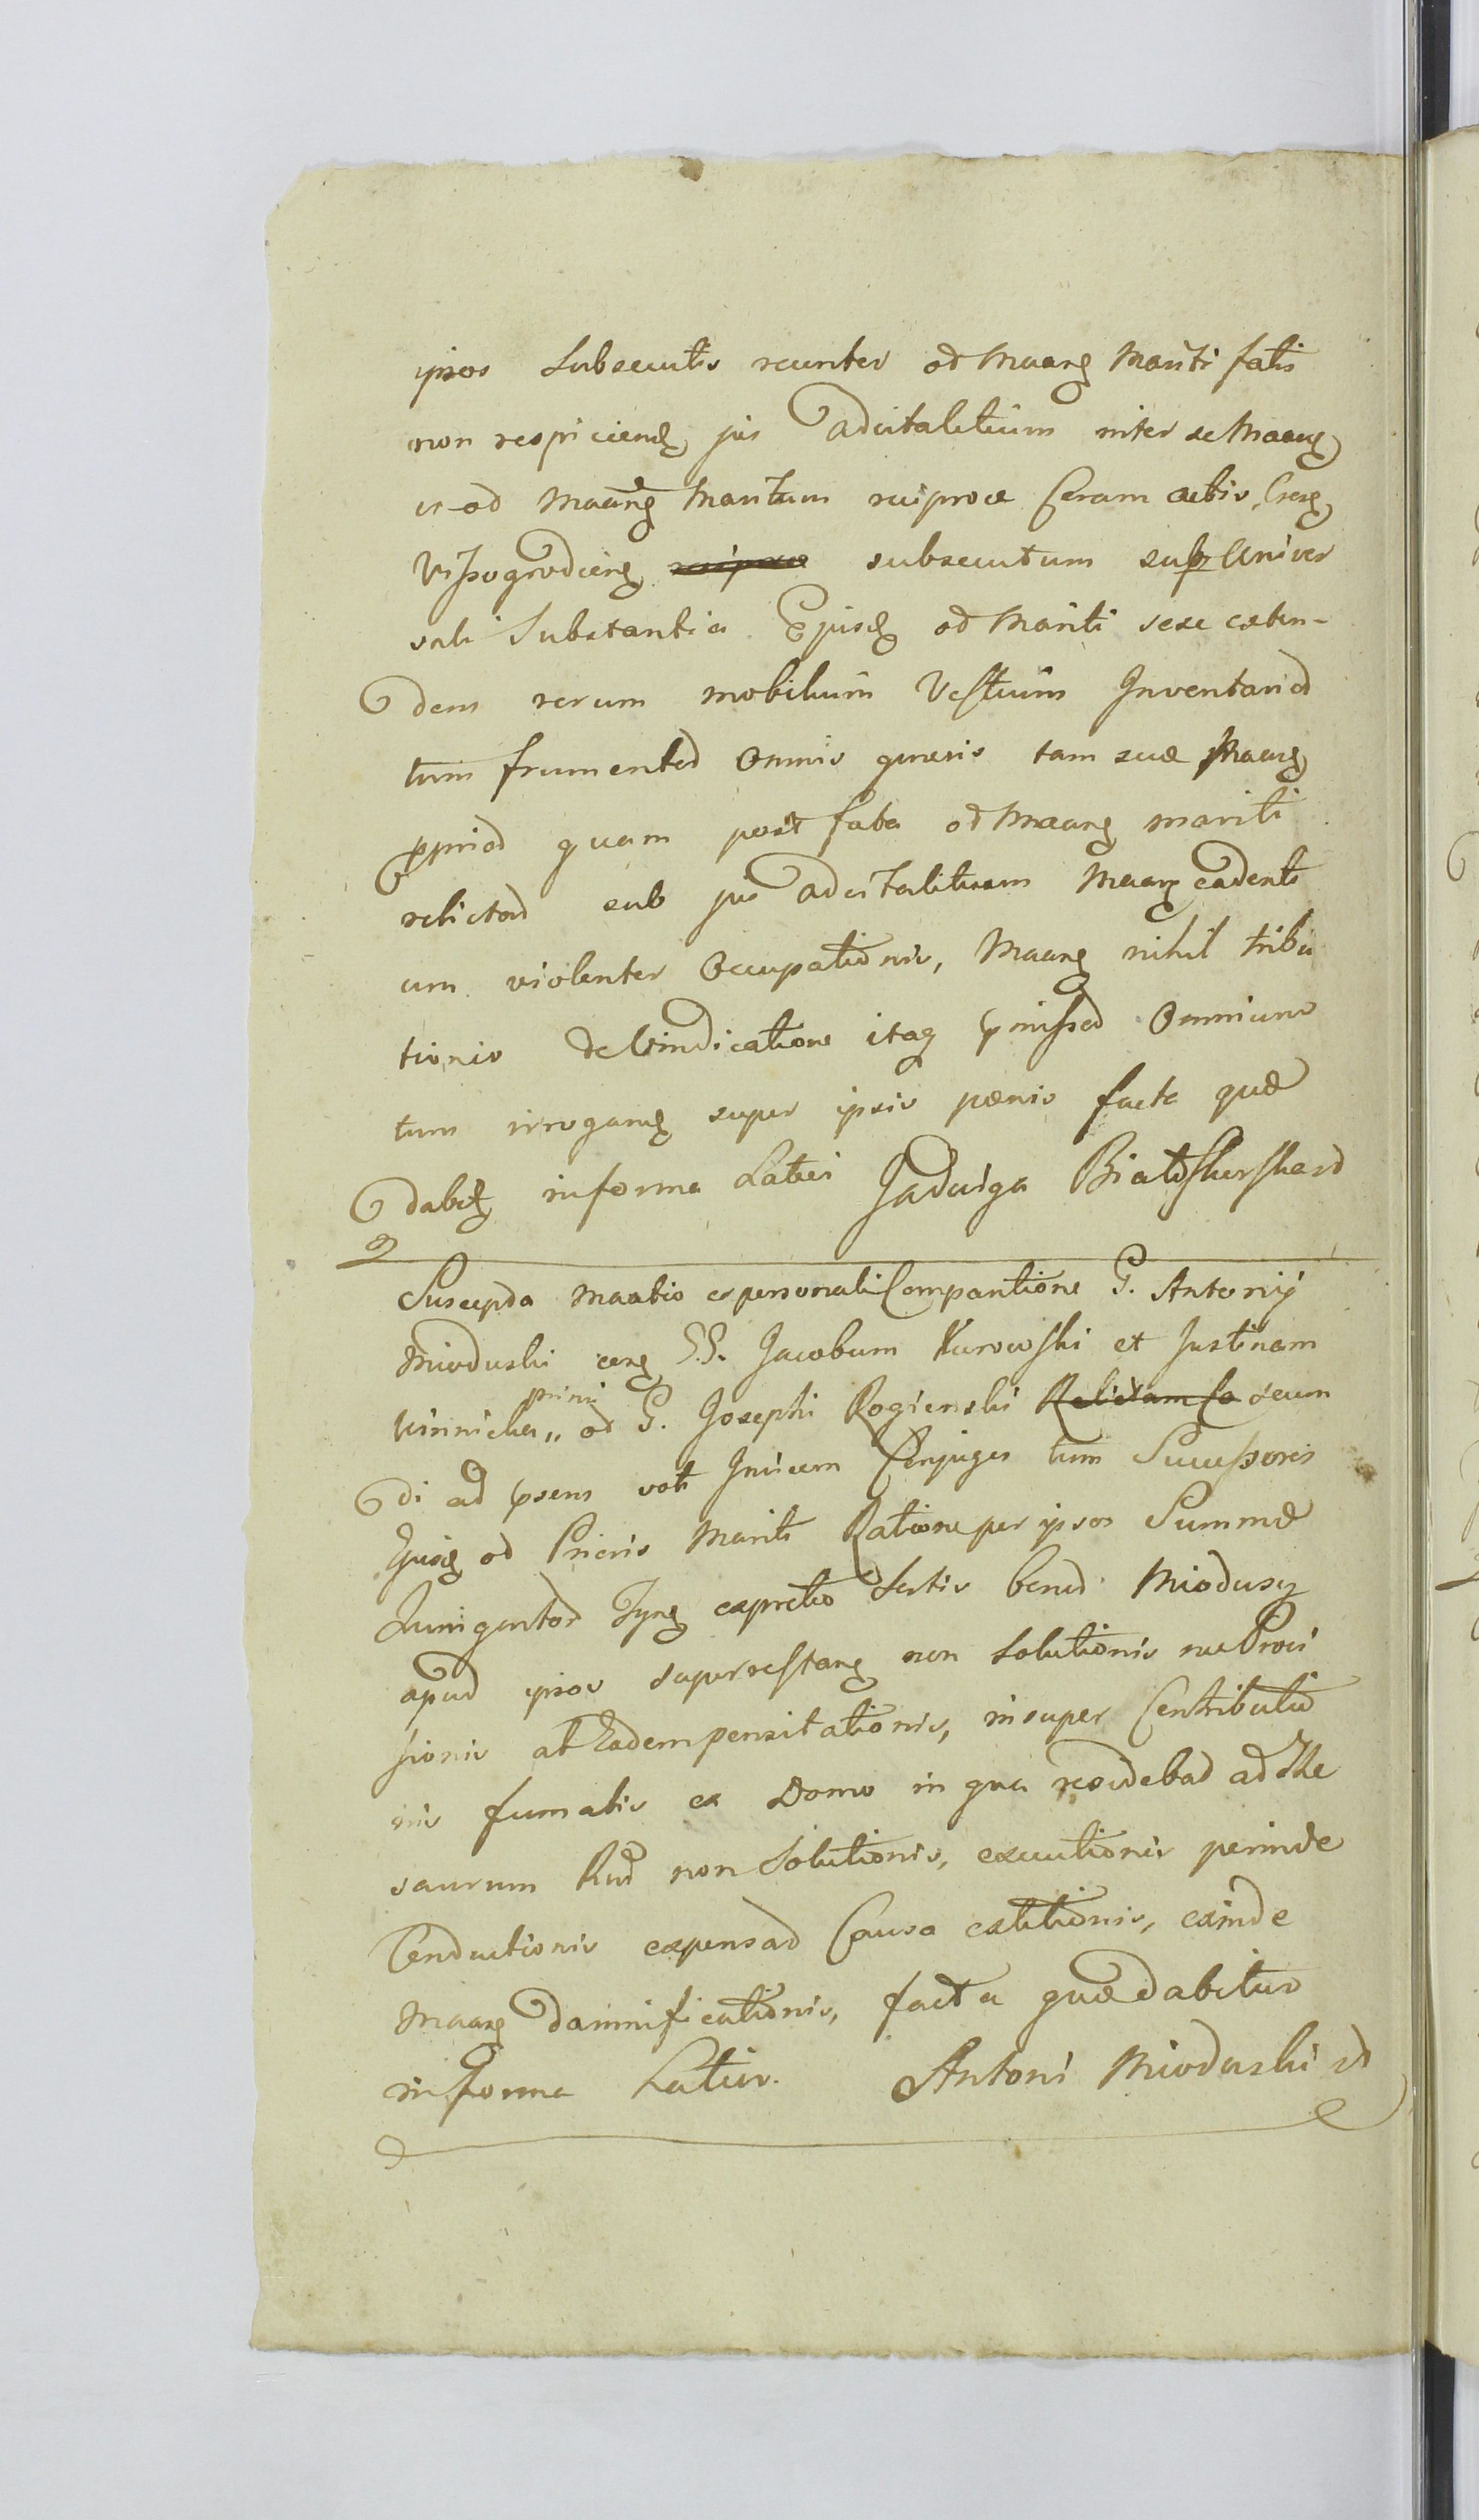 ipsos subsecutis recenter od Maang Mariti fatis
non respiciend jus advitalitium inter se Maang
et od Maang Maritum reciproce Coram actis Cseg
Vissogrodieng reciproce subsecutum sup Univer
sali Substantia Ejusd od Mariti sese exten-
dens rerum mobilium Vestium Inventariod
tum frumentod omnis generis tam suæ Maang
ppriod quam post fata od Maang mariti
relictod sub jus advitalitium Maang cadenti
um violenter Occupationis, Maang nihil tribu
tionis de Vindicatione itaq pmissod Omnium
tum irrogand super ipsis pœnis facta quæ
dabit in forma Latiori Jadwiga Białoskurskasd
Suscepda Maatio ex personali Comparitione G. Antonij
Mioduski cerg G.G. Jacobum Kurowski et Justinam
primi
Winnicka,, od G. Josephi Rogienski Relictam Co secun
di ad psens voti Invicem Conjuges tum Successores
Ejusd od Prioris Mariti Ratione per ipsos Summæ
Quingentod Tynf ex pretio Sortis bonod Miodusy
apud ipsos superrestang non Solutionis nec Provi
sionis ab Eadem pensitationis, insuper Contributio
nis fumalis ex Domo in qua residebad ad The
saurum Rud non Solutionis, executionis perinde
Conductionis expensad Causa extitionis, exinde
Maang damnificationis, facta quæ dabitur
in forma Latior. Antoni Mioduski sd